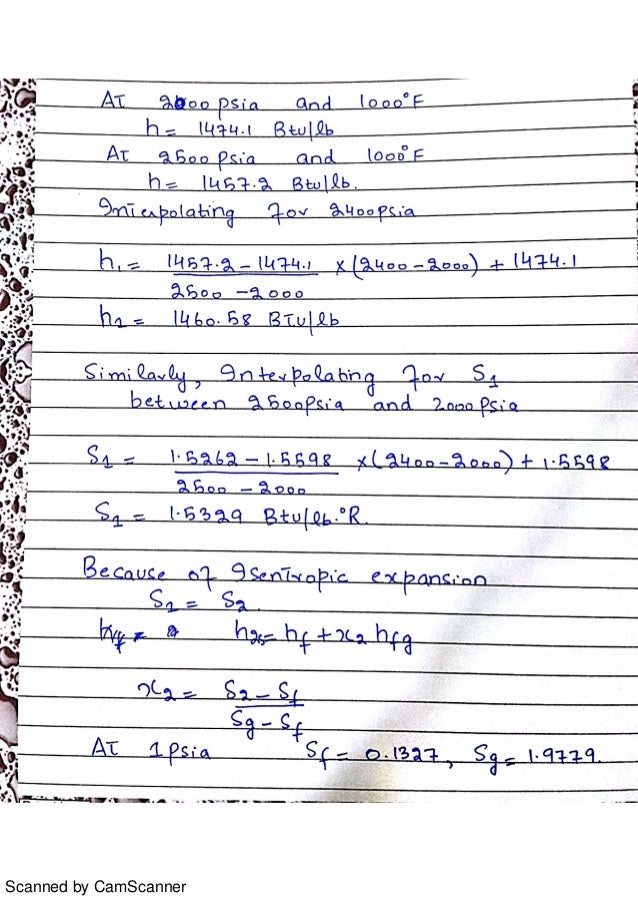 At 2000 psia and 1000°F
h = 1474.1 Btu/lb
At 2500 psia and 1000°F
h = 1457.2 Btu/lb.
Interpolating for 2400psia
h₁ = 1457.2 - 1474.1 × (2400 - 2000) + 1474.1
2500 - 2000
h₁ = 1460.58 BTu/lb
Similarly, Interpolating for S₁
between 2500psia and 2000 psia
S₁ = 1.5262 - 1.5598 × (2400 - 2000) + 1.5598
2500 - 2000
S₁ = 1.5329 Btu/lb.°R.
Because of Isentropic expansion
S₁ = S₂.
h₂ = hf + x₂ hfg
x₂ = S₂ - Sf
Sg - Sf
At 1 psia Sf = 0.1327, Sg = 1.9779.
Scanned by CamScanner